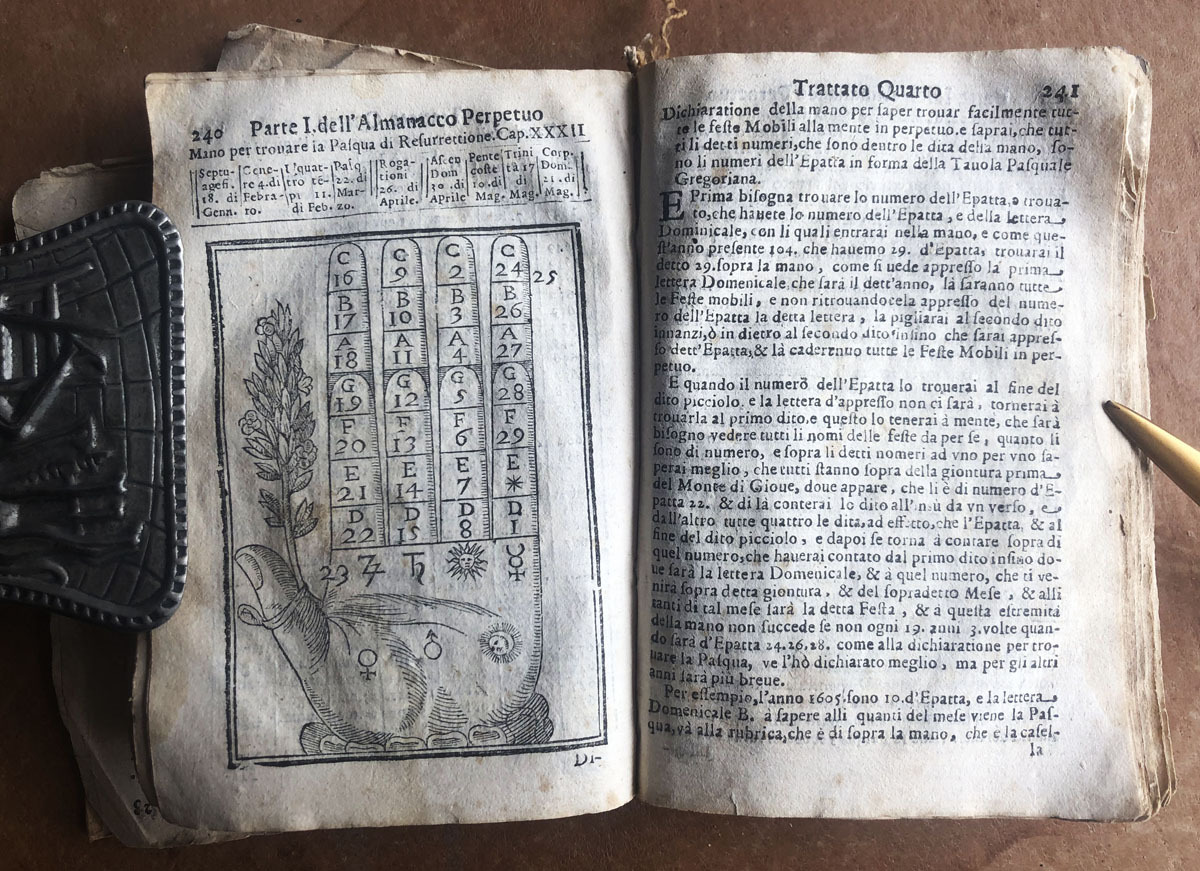 240 Parte I. dell'Almanacco Perpetuo
Mano per trouare la Pasqua di Resurrettione. Cap. XXXII
Septuagesi. 18. di Genn.
Cenere 4. di Febra- 10.
L'quattro tēpi 11. di Feb.
Pasq 22. di Mar- 20.
Rogationi 26. di Aprile.
Ascen Dom 30. di Aprile
Pente coste 10. di Mag.
Trini tà 17 di Mag.
Corp. Dom. 21. di Mag.
C C C C
16 9 2 24 25
B B B B
17 10 3 26
A A A A
18 11 4 27
G G G G
19 12 5 28
F F F F
20 13 6 29
E E E E
21 14 7 *
D D D D
22 15 8 1
23 ♃ ♄ ☿
♀ ♂
Di-
Trattato Quarto 241
Dichiaratione della mano per saper trouar facilmente tut-
te le feste Mobili alla mente in perpetuo. e saprai, che tut-
ti li detti numeri, che sono dentro le dita della mano, so-
no li numeri dell'Epatta in forma della Tauola Pasquale
Gregoriana.
E Prima bisogna trouare lo numero dell'Epatta, e troua-
to, che hauete lo numero dell'Epatta, e della lettera
Dominicale, con li quali entrarai nella mano, e come que-
st'anno presente 104. che hauemo 29. d'Epatta, trouarai il
detto 29. sopra la mano, come si uede appresso la prima
lettera Domenicale che sarà il dett'anno, là saranno tutte
le Feste mobili, e non ritrouandocela appresso del nume-
ro dell'Epatta la detta lettera, la pigliarai al secondo dito
innanzi, ò in dietro al secondo dito insino che sarai appres-
so dett'Epatta, & là caderanuo tutte le Feste Mobili in per-
petuo.
E quando il numerò dell'Epatta lo trouerai al fine del
dito picciolo, e la lettera d'appresso non ci sarà, tornerai à
trouarla al primo dito. e questo lo tenerai à mente, che sarà
bisogno vedere tutti li nomi delle feste da per se, quanto li
sono di numero, e sopra li detti nomeri ad vno per vno sa-
perai meglio, che tutti stanno sopra della giontura prima
del Monte di Gioue, doue appare, che li è di numero d'E-
patta 22. & di là conterai lo dito all'insù da vn verso, e
dall'altro tutte quattro le dita, ad effetto, che l'Epatta, & al
fine del dito picciolo, e dapoi se torna à contare sopra di
quel numero, che hauerai contato dal primo dito insino do-
ue sarà la lettera Domenicale, & à quel numero, che ti ve-
nirà sopra detta giontura, & del sopradetto Mese, & alli
tanti di tal mese sarà la detta Festa, & à questa estremità
della mano non succede se non ogni 19. anni 3. volte quan-
do sarà d'Epatta 24. 26. 28. come alla dichiaratione per tro-
uare la Pasqua, ve l'hò dichiarato meglio, ma per gli altri
anni sarà più breue.
Per essempio, l'anno 1605. sono 10. d'Epatta, e la lettera
Domenicale B. à sapere alli quanti del mese viene la Pas-
qua, và alla rubrica, che è di sopra la mano, che è la casel-
la